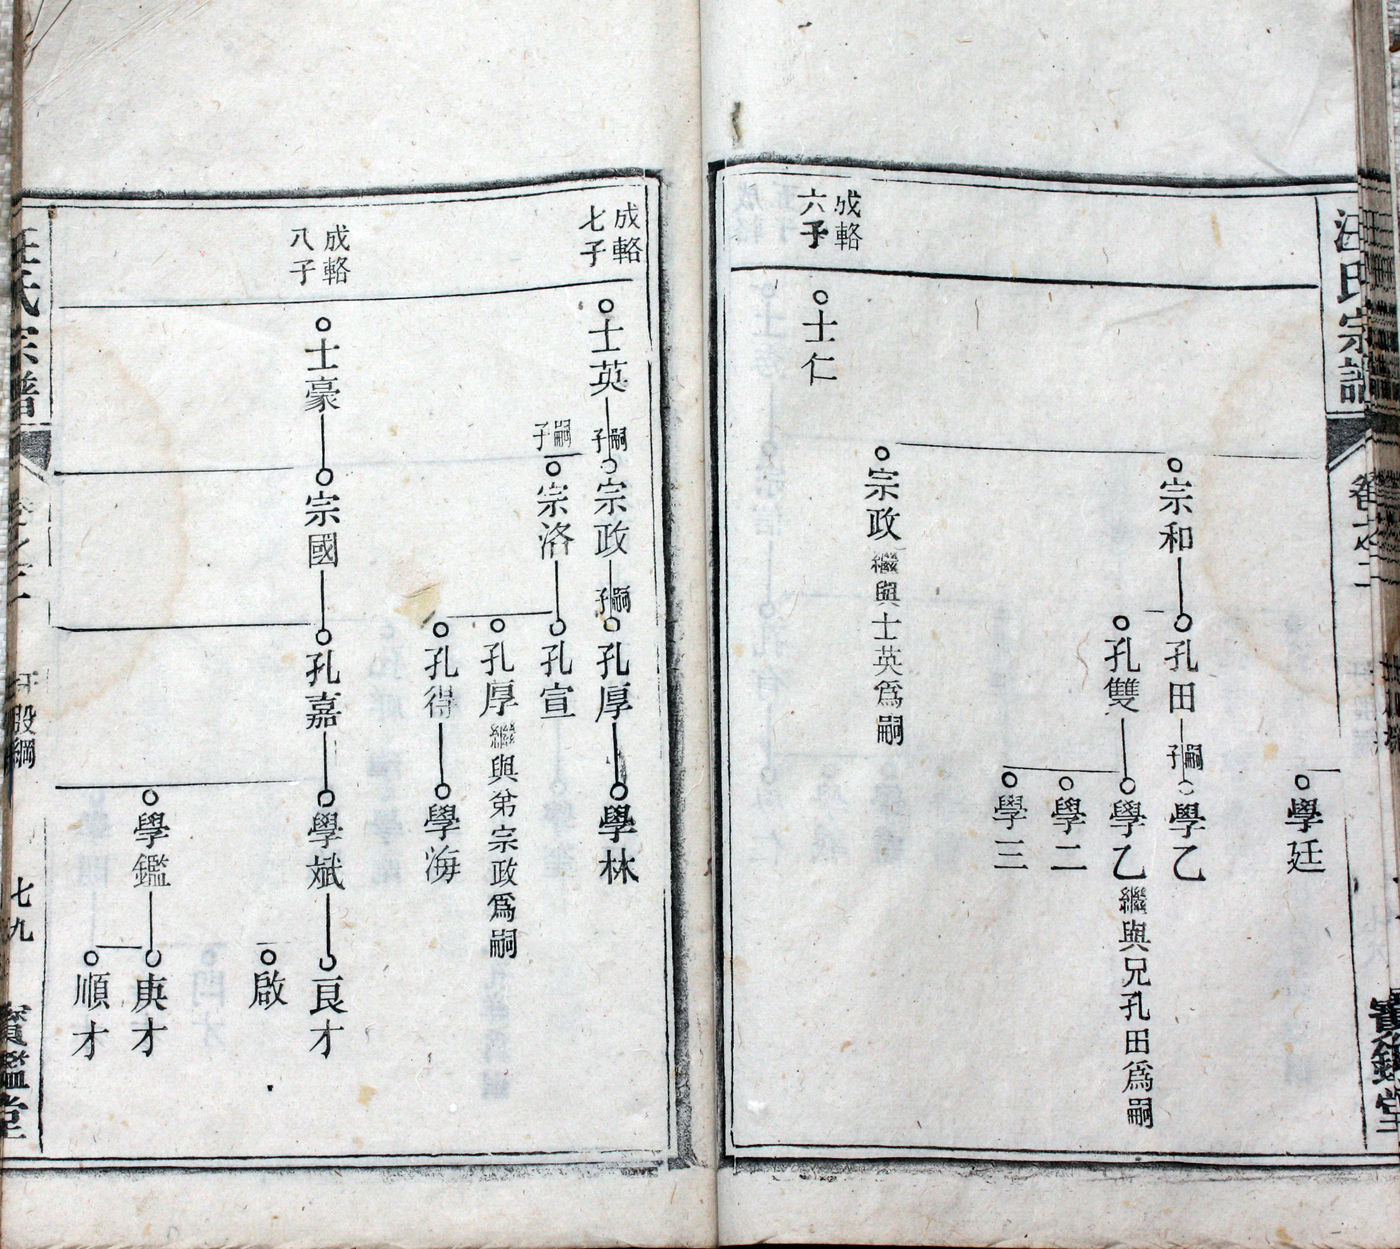 汪氏宗譜
卷之二
寶鑑堂
學廷
宗和
孔田
嗣子
學乙
孔雙
學乙繼與兄孔田為嗣
學二
學三
宗政繼與士英為嗣
成輅
六子
士仁
成輅
七子
士英
嗣子
宗政
嗣子
孔厚
學林
嗣子
宗洛
孔宣
孔厚繼與弟宗政為嗣
孔得
學海
成輅
八子
士豪
宗國
孔嘉
學斌
良才
啟
學鑑
庚才
順才
汪氏宗譜
卷之二
七九
寶鑑堂